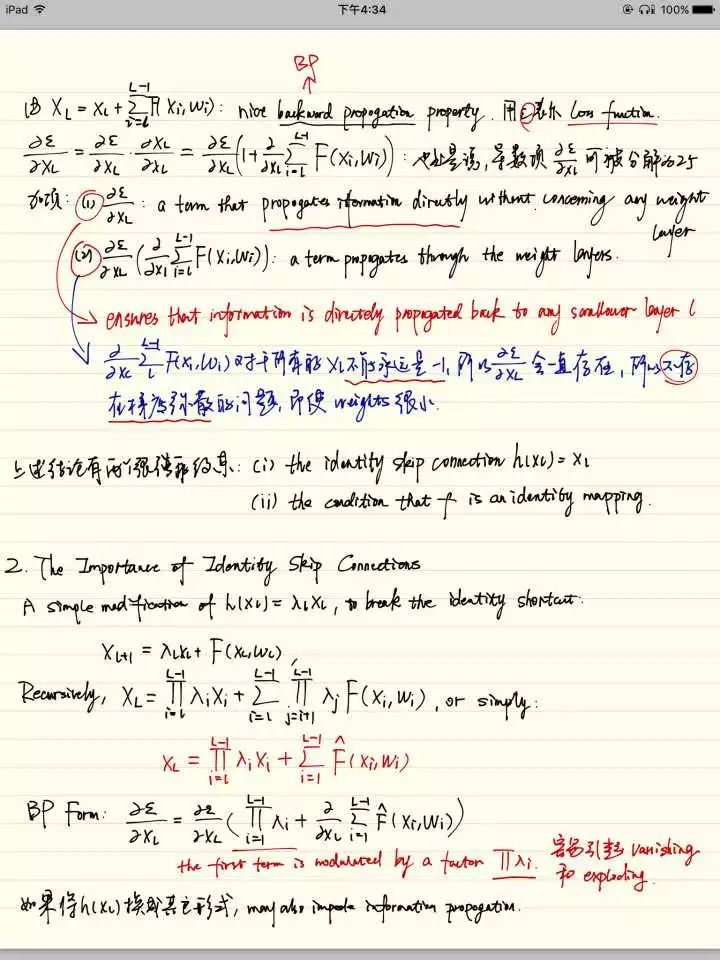 iPad 下午4:34 100%
BP
(3) X_L = X_l + Σ_{i=l}^{L-1} F(X_i, W_i): nice backward propogation property. 用ε表示 Loss function.
∂ε/∂X_l = ∂ε/∂X_L · ∂X_L/∂X_l = ∂ε/∂X_L (1 + ∂/∂X_l Σ_{i=l}^{L-1} F(X_i, W_i)): 也就是说, 导数项 ∂ε/∂X_l 可被分解为2个
加项: (1) ∂ε/∂X_L: a term that propagates iformation directly without concerning any weight
layer
(2) ∂ε/∂X_L (∂/∂X_l Σ_{i=l}^{L-1} F(X_i, W_i)): a term propagates through the weight layers.
ensures that information is directely propagated back to any shallower layer l
∂/∂X_l Σ_{l}^{L-1} F(X_i, W_i) 对于所有的 X_l 不能永远是-1, 所以 ∂ε/∂X_l 会一直存在, 所以不存
在梯度弥散的问题, 即使 weights 很小.
上述结论有两个很强的约束: (i) the identity skip connection h(X_l) = X_l
(ii) the condition that f is an identity mapping.
2. The Importance of Identity Skip Connections
A simple modification of h(X_l) = λ_l X_l, to break the identity shortcut:
X_{l+1} = λ_l X_l + F(X_l, W_l),
Recursively, X_L = Π_{i=l}^{L-1} λ_i X_i + Σ_{i=l}^{L-1} Π_{j=i+1}^{L-1} λ_j F(X_i, W_i), or simply:
X_L = Π_{i=l}^{L-1} λ_i X_i + Σ_{i=1}^{L-1} F̂(X_i, W_i)
BP Form: ∂ε/∂X_l = ∂ε/∂X_L (Π_{i=1}^{L-1} λ_i + ∂/∂X_l Σ_{i=1}^{L-1} F̂(X_i, W_i))
the first term is modulated by a factor Πλ_i. 容易引起 vanishing
和 exploding.
如果将h(X_l)换成其它形式, may also impede information propogation.